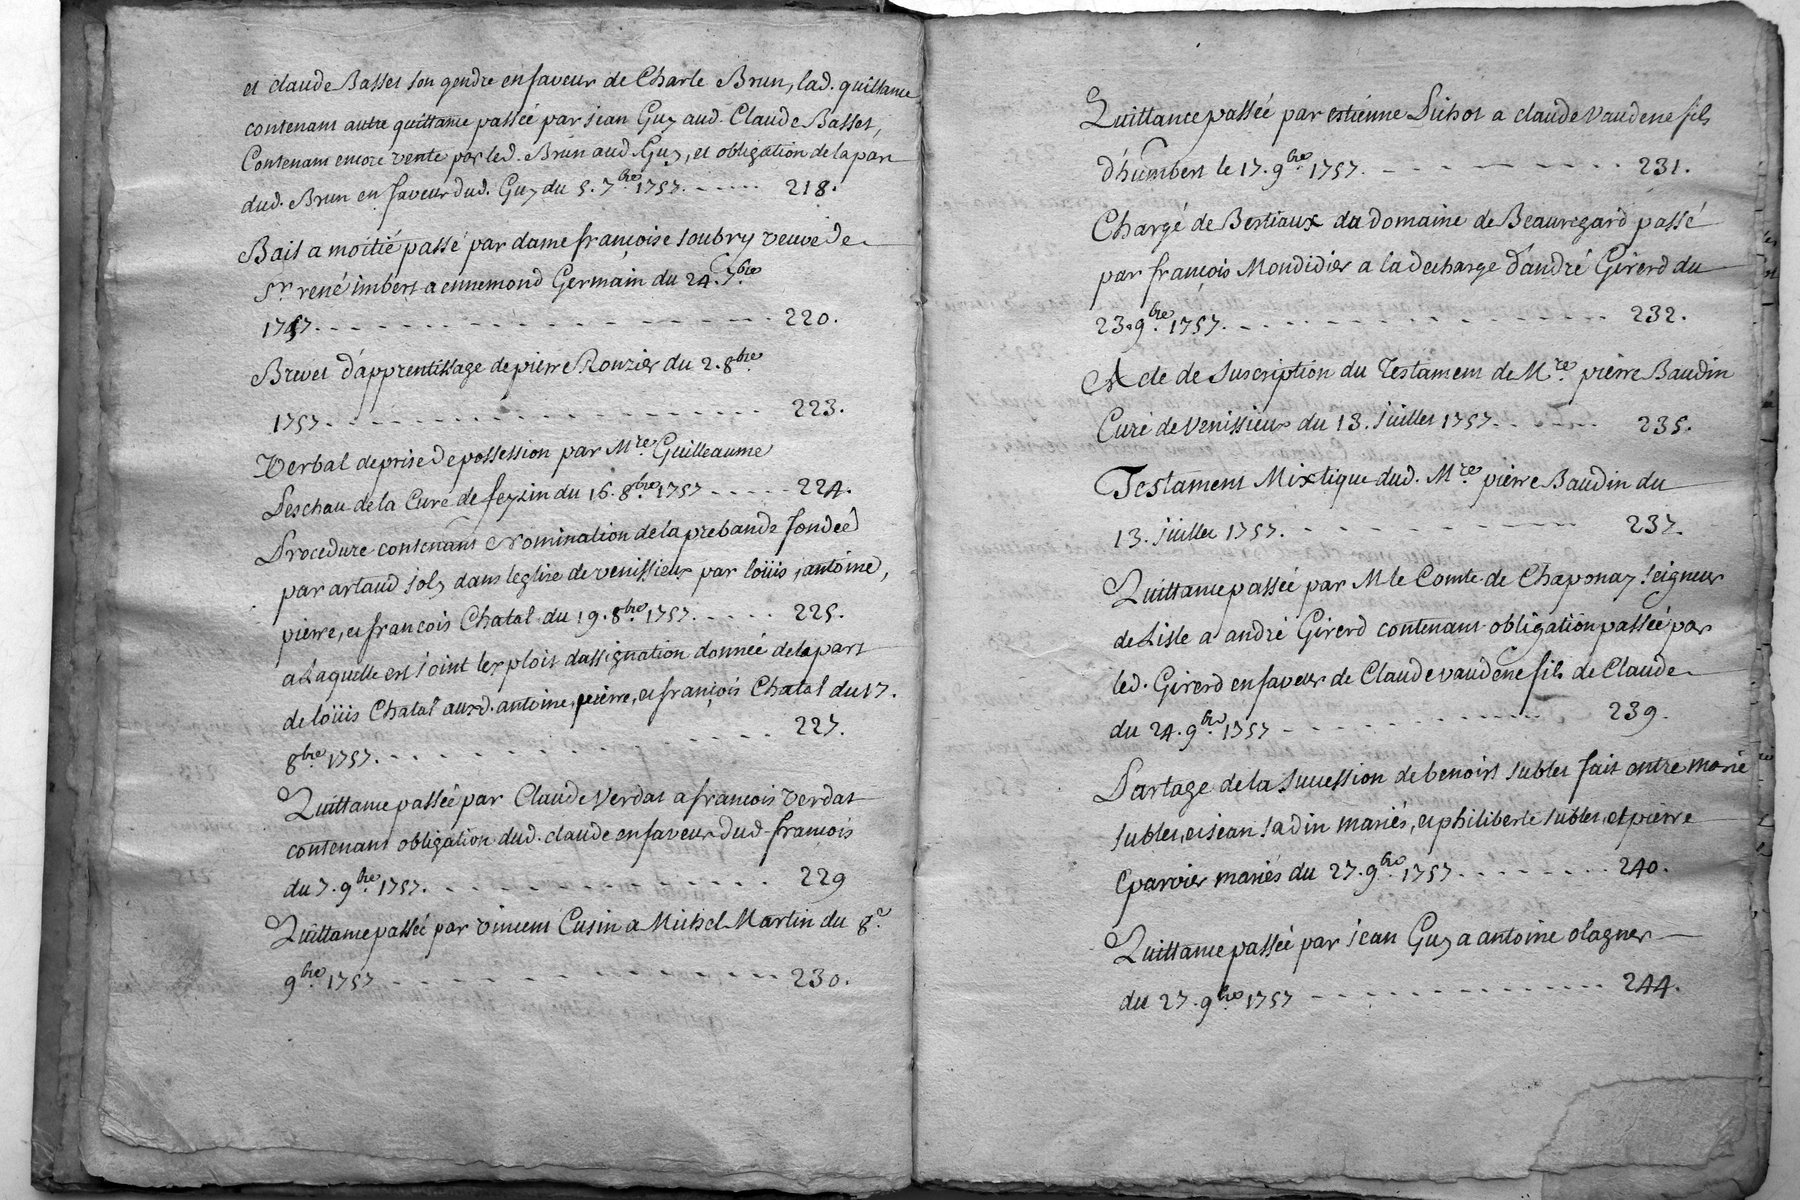 et claude Basset son gendre en faveur de Charle Brun, lad. quittance
contenant autre quittance passée par jean Guy aud. Claude Basset,
Contenant encore vente par led. Brun aud. Guy, et obligation de la part
dud. Brun en faveur dud. Guy du 5. 7.bre 1757. - - - - - 218.
Bail a moitié passé par dame francoise soubry veuve de
Sr. rené imbert a ennemond Germain du 24. 7.bre
1757. - - - - - - - - - - - - - - - 220.
Brevet d'apprentissage de pierre Ronzier du 2. 8.bre
1757. - - - - - - - - - - - - - - - 223.
Verbal de prise de possession par Mre. Guilleaume
Leschau de la Cure de feyzin du 16. 8.bre 1757 - - - - - 224.
Procedure contenant nomination de la prebande fondée
par artaud joly dans leglise de venissieux par loüis, antoine,
pierre, et francois Chatal du 19. 8.bre 1757. - - - - - 225.
a Laquelle est joint lexploit dassignation donnée de la part
de loüis Chatal auxd. antoine, pierre, et françois Chatal du 17.
8.bre 1757. - - - - - - - - - - - - 227.
Quittance passée par Claude Verdat a francois Verdat
contenant obligation dud. claude en faveur dud. francois
du 7. 9.bre 1757. - - - - - - - - - - - - 229
Quittance passée par vincent Cusin a Michel Martin du 8.e
9.bre 1757 - - - - - - - - - - - - - - 230.
Quittance passée par estienne Pichot a claude vaudene fils
d'humbert le 17. 9.bre 1757. - - - - - - - - 231.
Chargé de Bestiaux du Domaine de Beauregard passé
par françois Mondidier a la decharge d'andré Girerd du
23. 9.bre 1757. - - - - - - - - - - - - - 232.
Acte de Suscription du Testament de Mre. pierre Baudin
Curé de Venissieux du 13. juillet 1757. - - - - - 235.
Testament Mixtique dud. Mre. pierre Baudin du
13. juillet 1757. - - - - - - - - - - 237.
Quittance passée par M le Comte de Chaponay Seigneur
de Lisle a andré Girerd contenant obligation passée par
led. Girerd en faveur de Claude vaudene fils de Claude
du 24. 9.bre 1757 - - - - - - - - - - 239.
Partage de la succession de benoist sublet fait entre marie
sublet, et jean sadin mariés, et philiberte sublet, et pierre
Eparvier mariés du 27. 9.bre 1757. - - - - - - - - 240.
Quittance passée par jean Guy a antoine olagner
du 27. 9.bre 1757 - - - - - - - - - - - - - - 244.